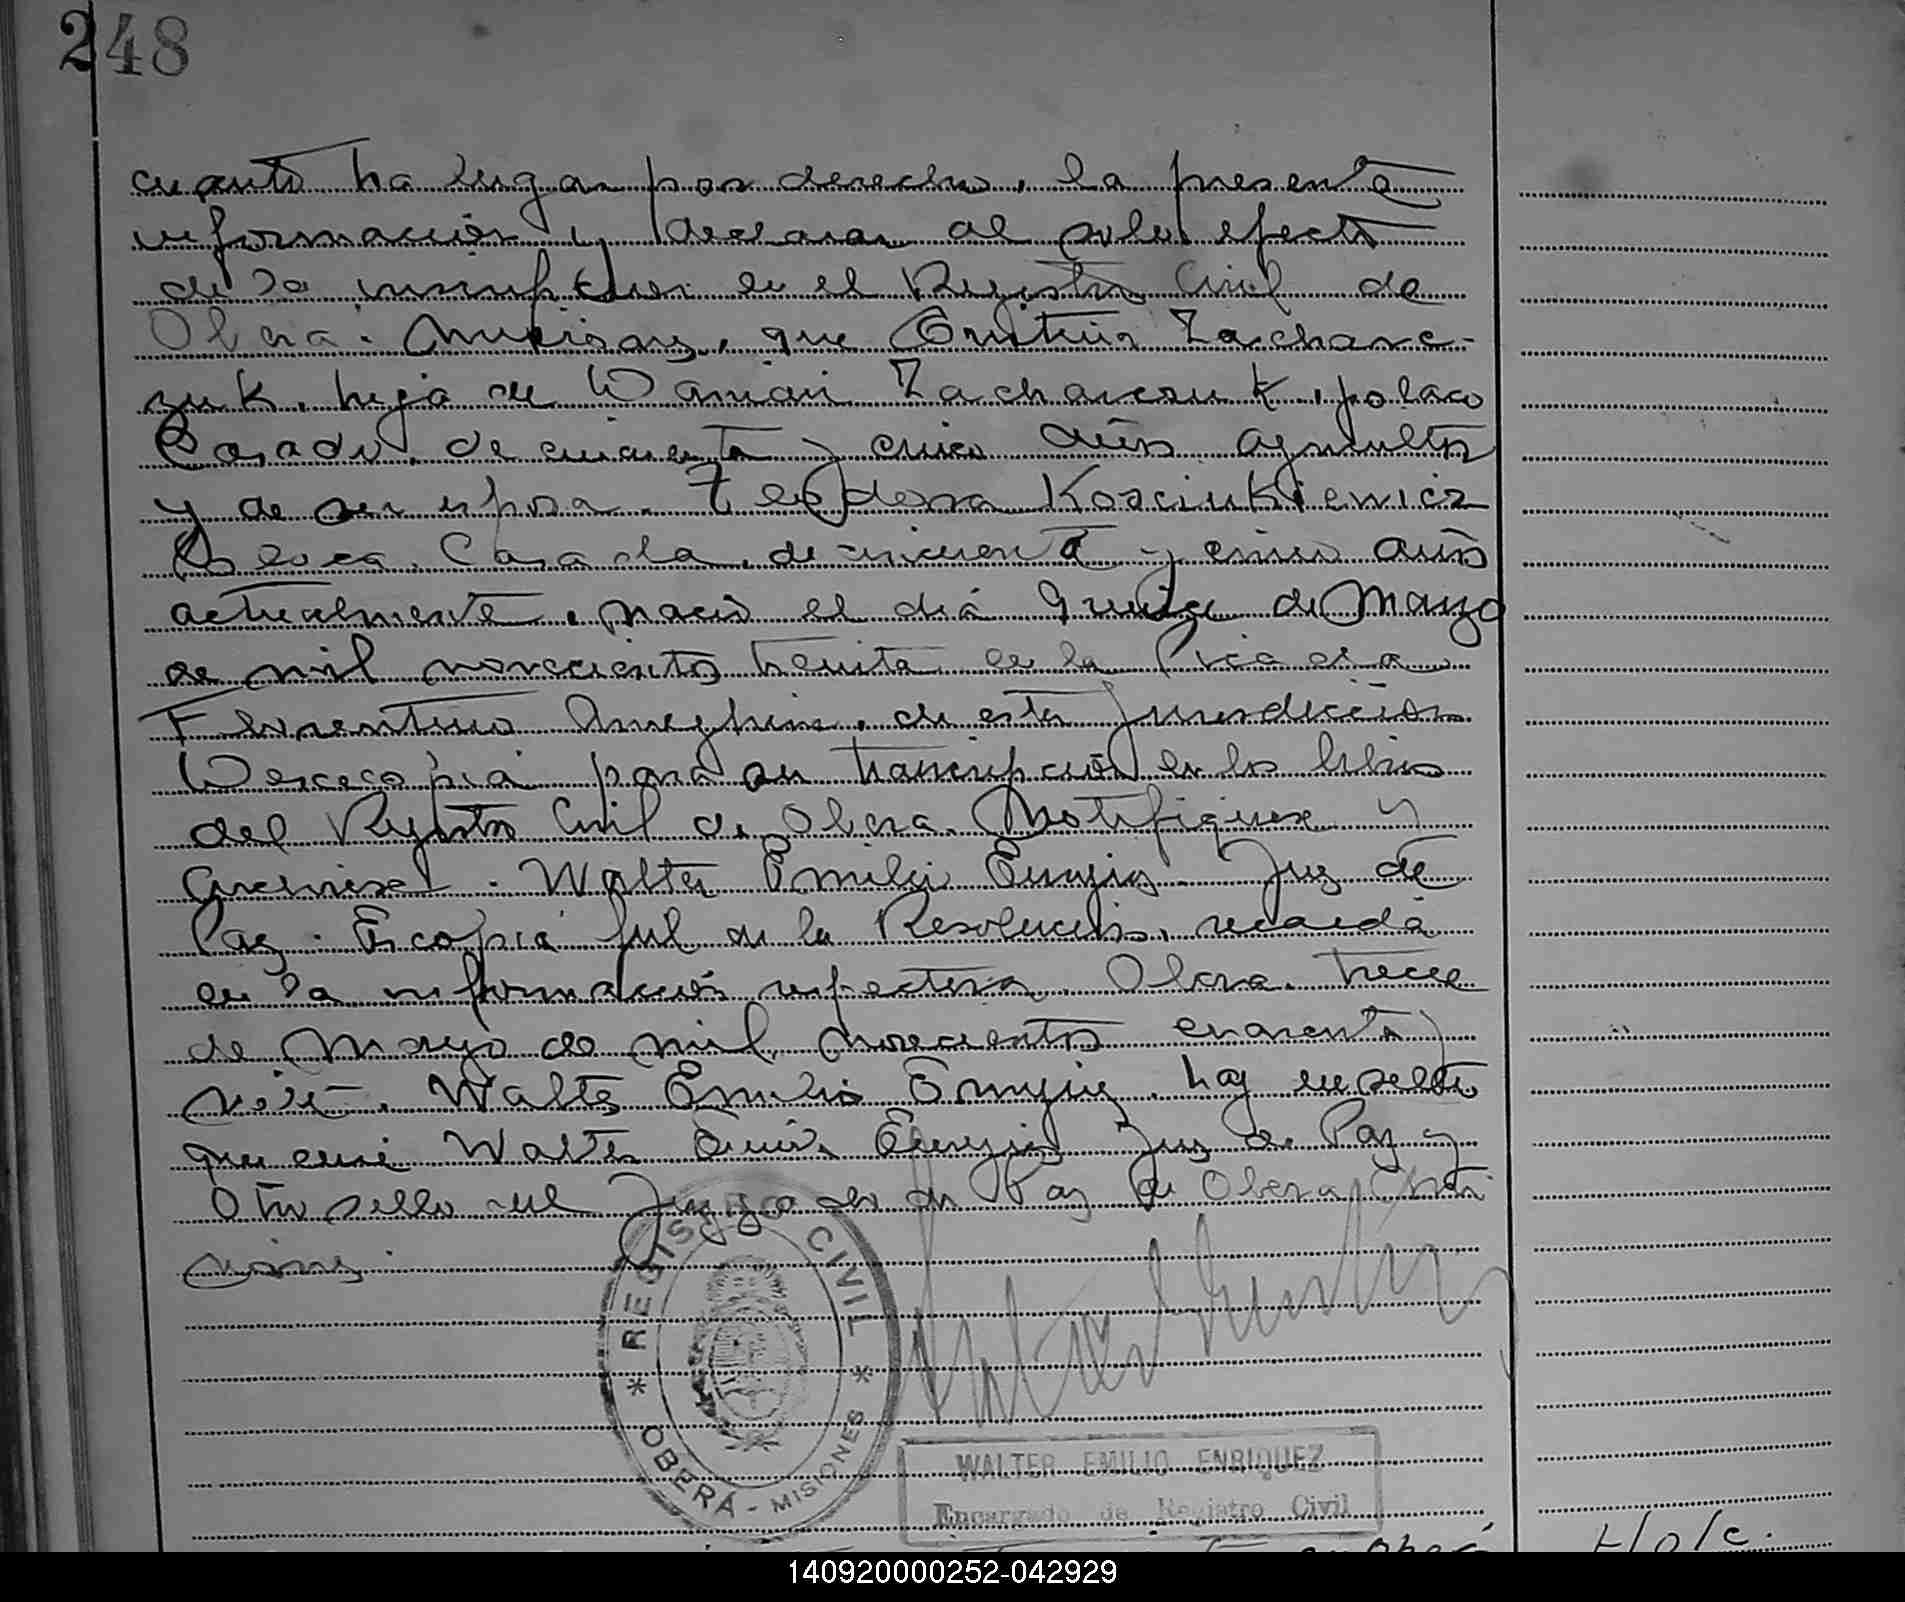 248
cuanto ha lugar por derecho, la presente
informacion y declarar al solo efecto
de la inscripcion en el Registro Civil de
Obera. Misiones, que Zacharc-
zuk, hija de Zacharczuk, polaco
Casado, de cincuenta y cinco años agricultor
y de su esposa Teodora Kosciukiewicz
Polaca, Casada, de cincuenta y cinco años
actualmente, nació el dia quince de Marzo
de mil novecientos treinta en la Picada
Florentino Ameghino, de esta jurisdiccion
copia para su transcripcion en los libros
del Registro Civil de Obera. Notifiquese y
archivese. Walter Emilio Enriquez. Juez de
Paz. Es copia fiel de la Resolucion, recaida
en la informacion respectiva. Obera. trece
de Mayo de mil novecientos cuarenta y
siete. Walter Emilio Enriquez. hay un sello
que dice Walter Emilio Enriquez Juez de Paz y
Otro sello del Juzgado de Paz de Obera Misi
ones.
* REGISTRO CIVIL *
OBERÁ - MISIONES
WALTER EMILIO ENRIQUEZ
Encargado de Registro Civil
140920000252-042929